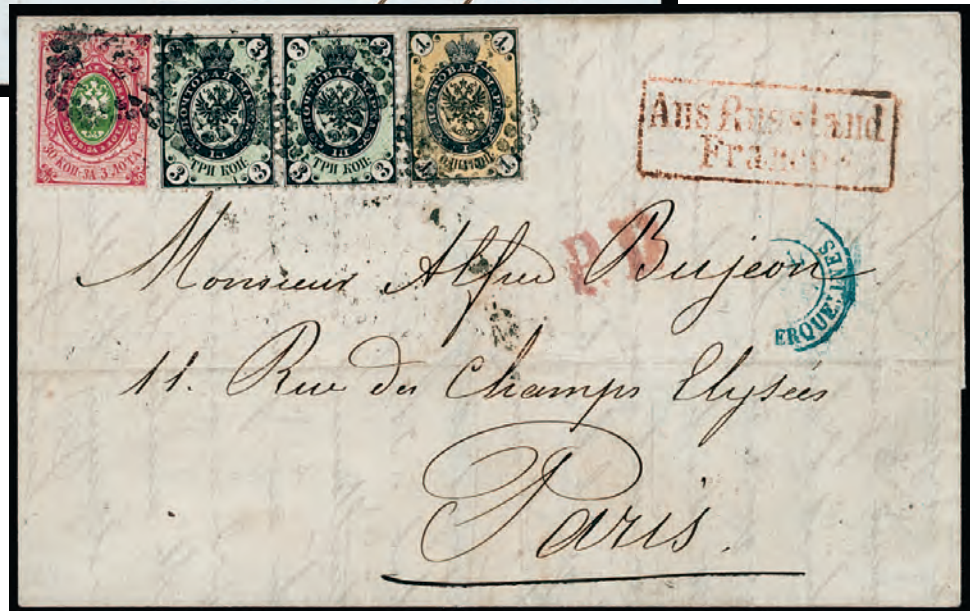 30 КОП. ЗА 3 ЛОТА
3 3
ПОЧТОВАЯ МАРКА
ТРИ КОП.
3 3
3 3
ПОЧТОВАЯ МАРКА
ТРИ КОП.
3 3
1 1
ПОЧТОВАЯ МАРКА
ОДНА КОП.
1 1
Aus Russland
Franco
P.D.
ERQUELINES
Monsieur Alfred Bujeon
11. Rue des Champs Elysées
Paris.